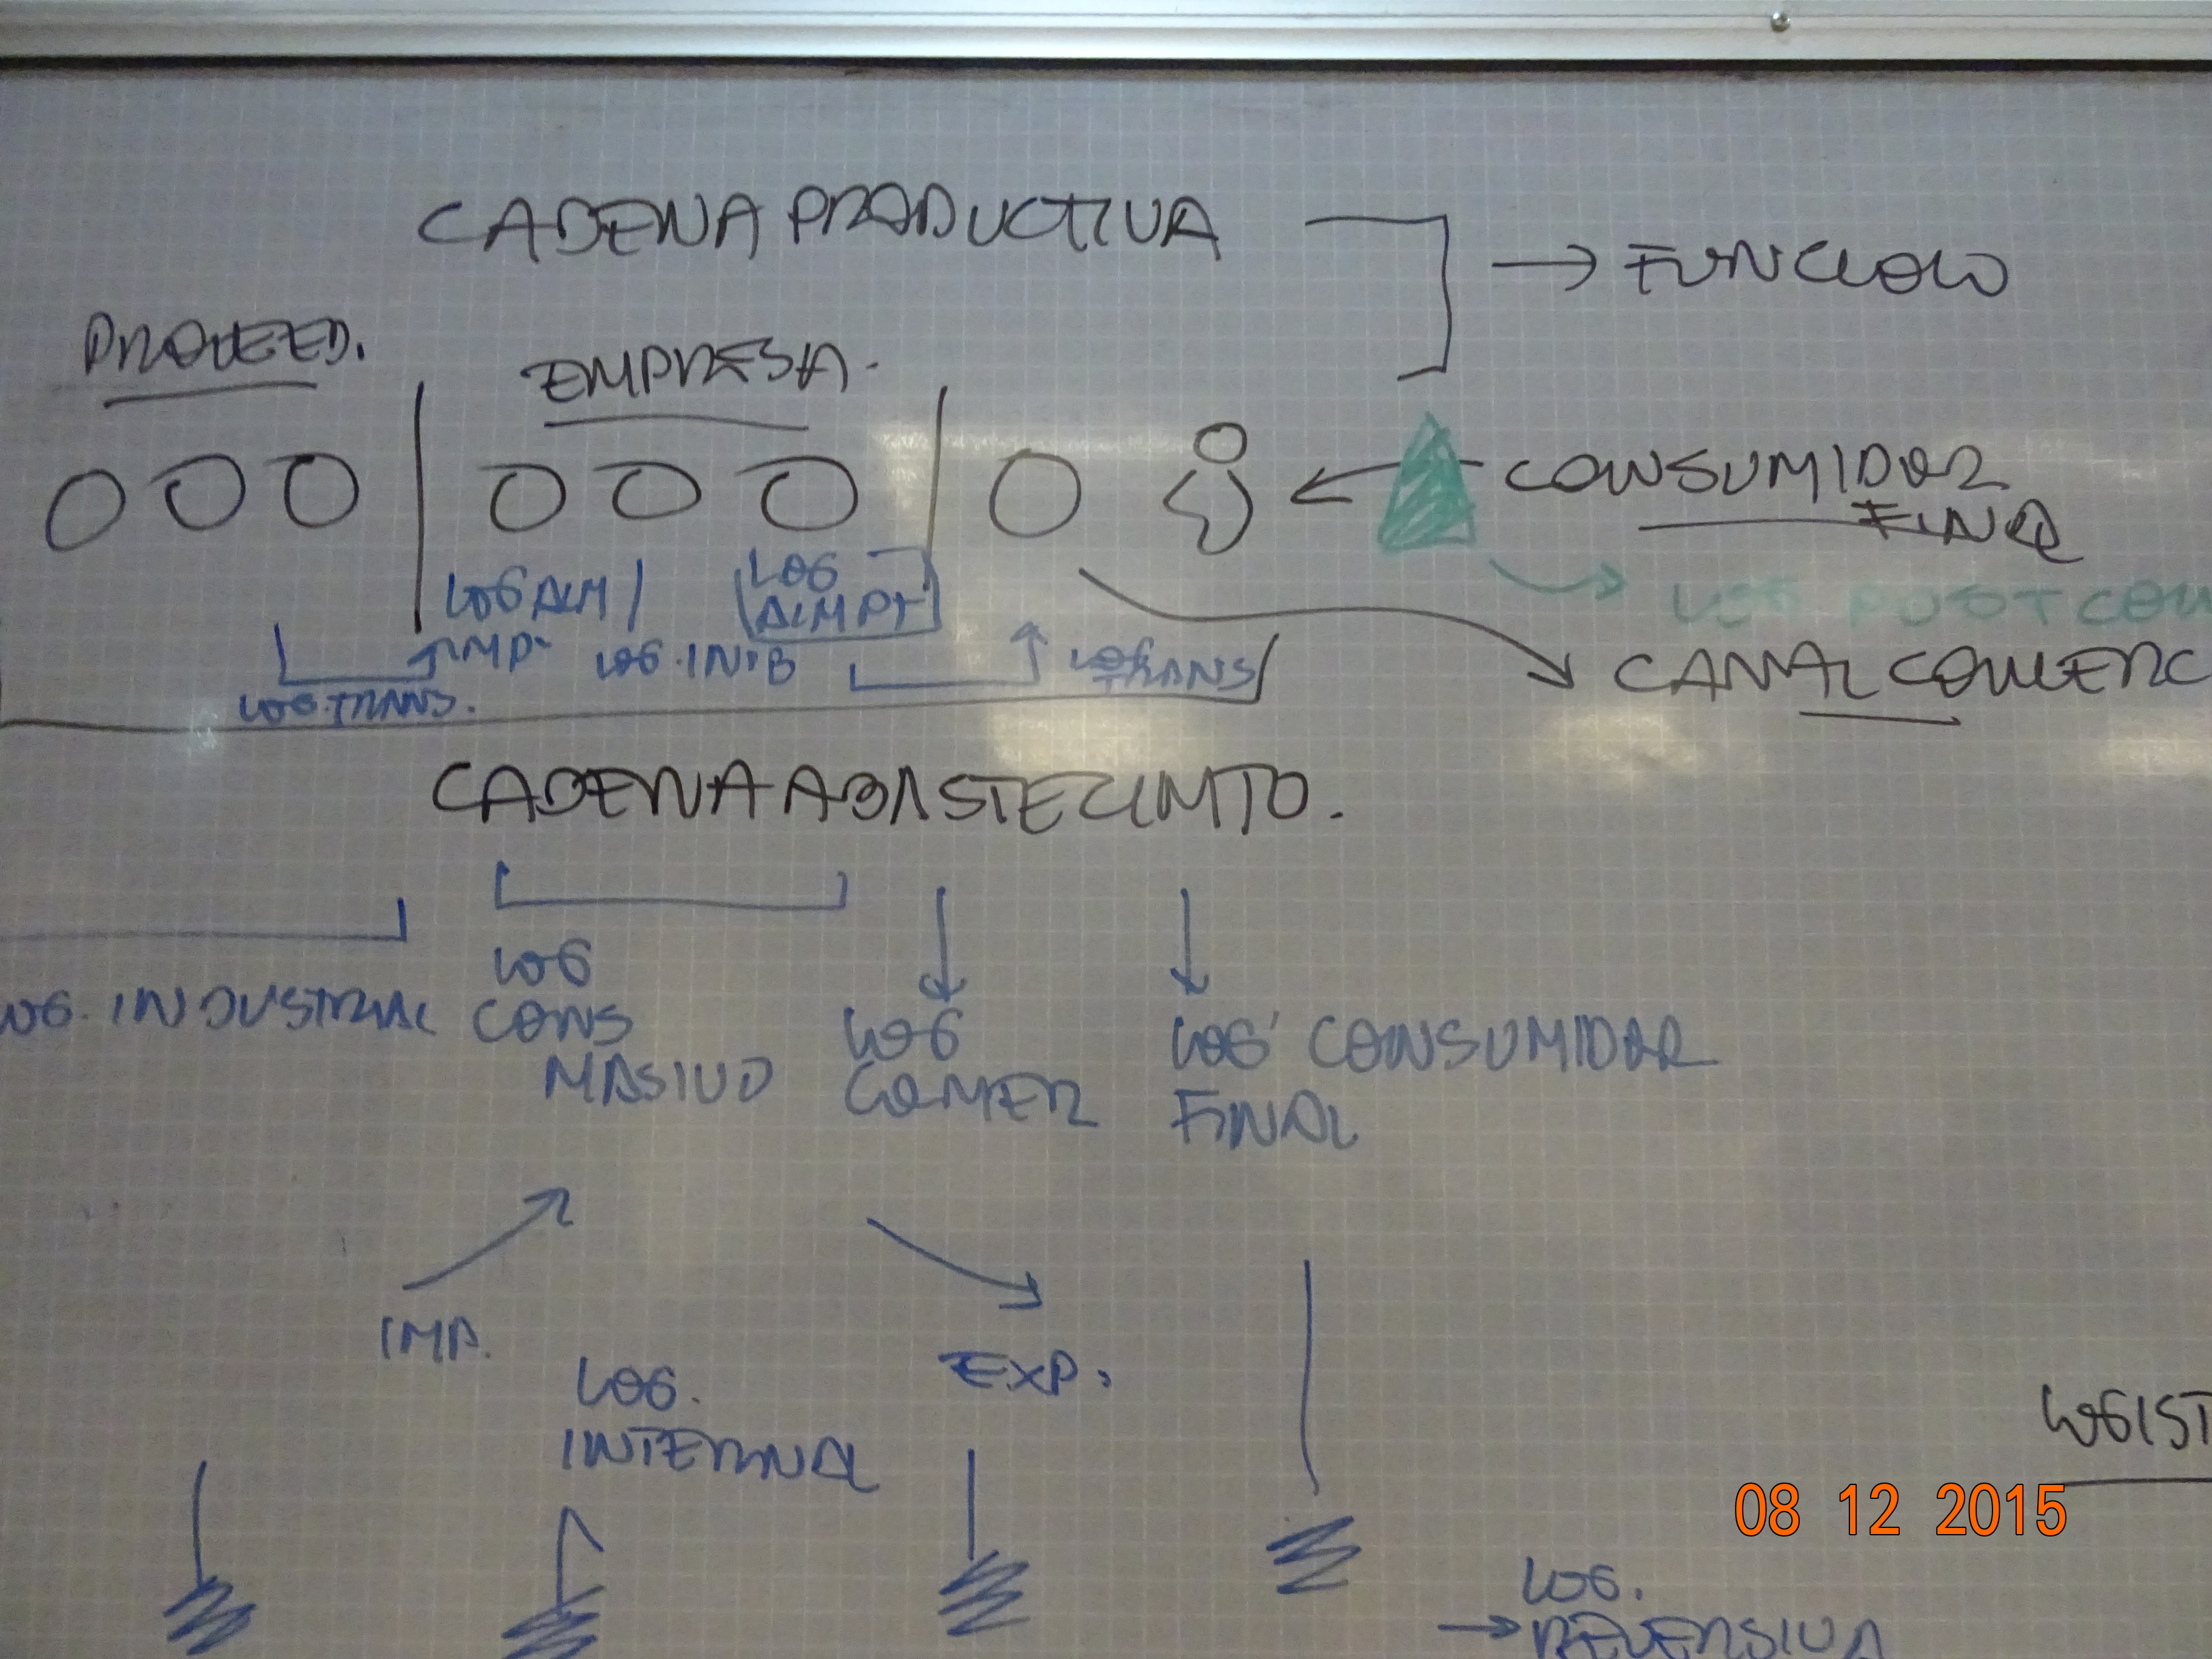 CADENA PRODUCTIVA
→ FUNCION
PROVEED.
EMPRESA.
CONSUMIDOR
FINAL
LOG ALM
MP
LOG
ALM PT
LOG POST CON
LOG. INT B
LOG
TRANS
LOG. TRANS.
CANAL COMERC
CADENA ABASTECIMTO.
LOG. INDUSTRIAL
LOG
CONS
MASIVO
LOG
COMER
LOG CONSUMIDOR
FINAL
IMP.
EXP.
LOG.
INTERNAL
LOGIST
08 12 2015
LOG.
→ REVERSIVA